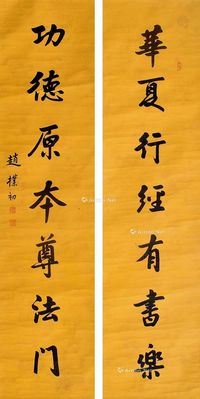 華夏行經有書樂
功德原本尊法门
趙樸初